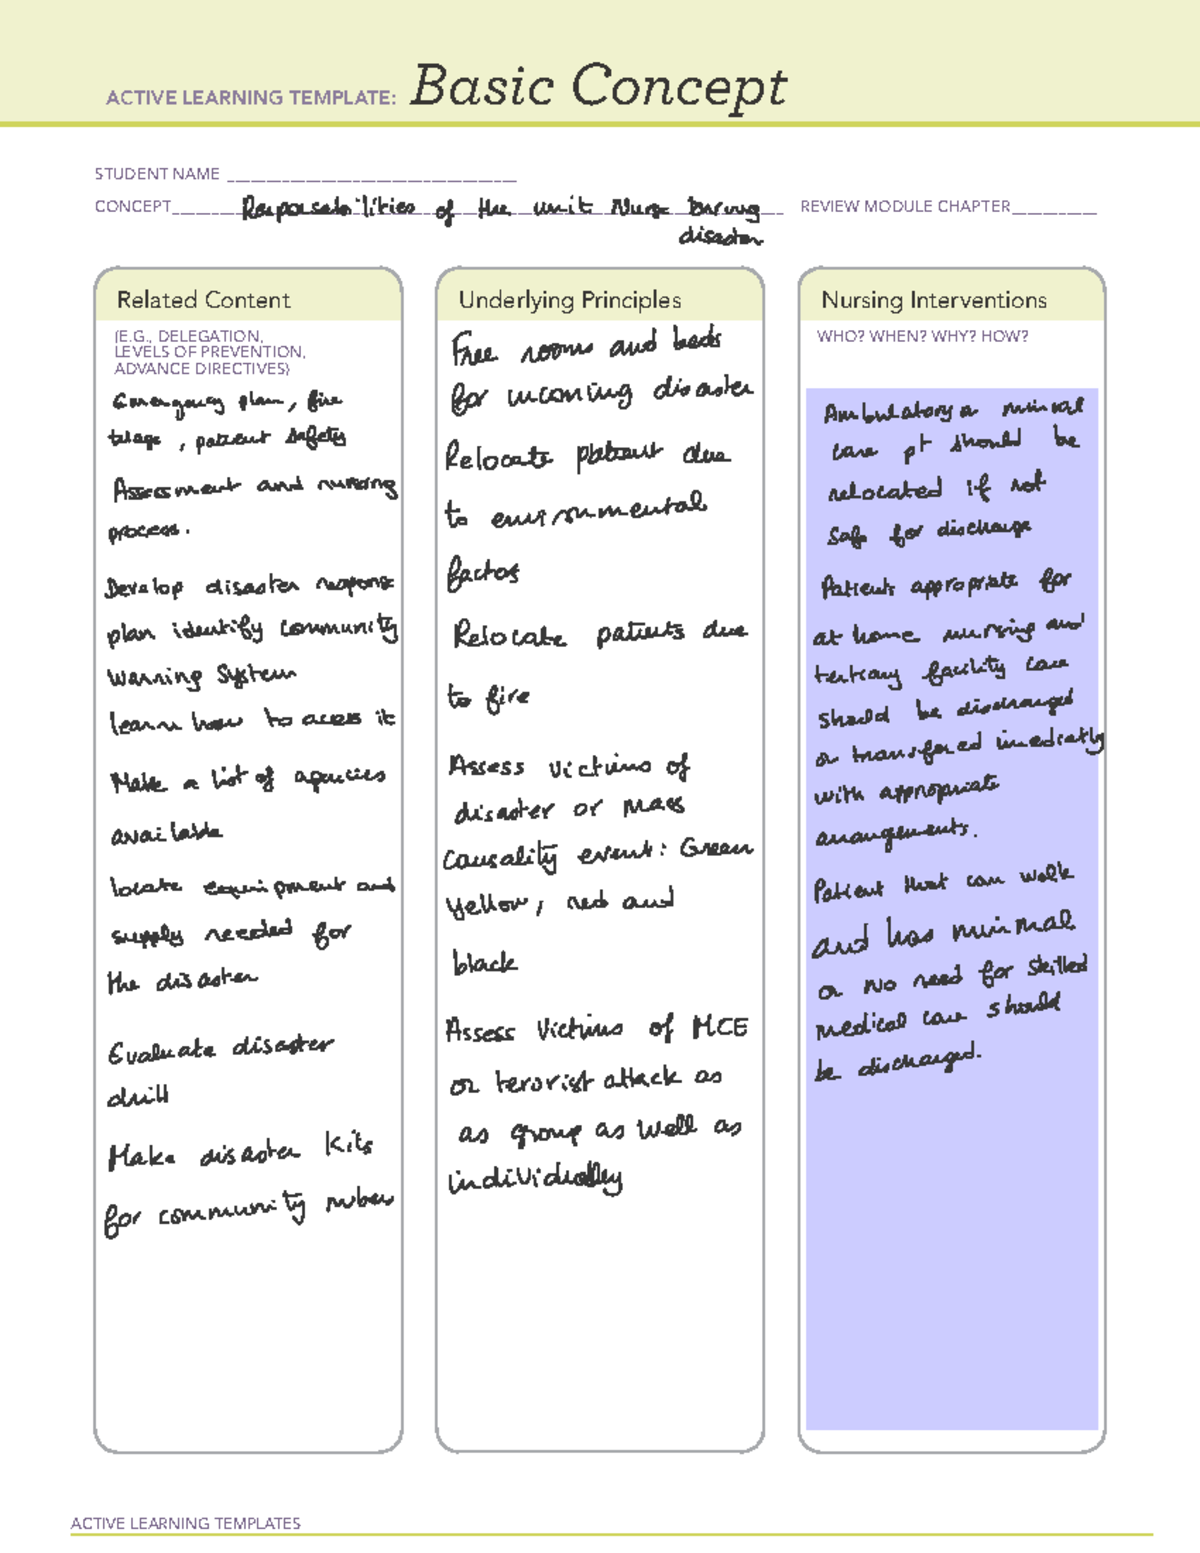 ACTIVE LEARNING TEMPLATE: Basic Concept
STUDENT NAME
CONCEPT Responsabilities of the unit Nurse During
disaster
REVIEW MODULE CHAPTER
Related Content
(E.G., DELEGATION,
LEVELS OF PREVENTION,
ADVANCE DIRECTIVES)
Emergency plan, fire
, patient safety
Assessment and nursing
process.
Develop disaster response
plan identify community
warning System
learn how to acess it
Make a list of agencies
available
locate equipment and
supply needed for
the disaster
Evaluate disaster
drill
Make disaster Kits
for community
Underlying Principles
Free rooms and beds
for incoming disaster
Relocate patient due
to environmental
factos
Relocate patients due
to fire
Assess victims of
disaster or mass
causality event: Green
yellow, red and
black
Assess Victims of MCE
or terorist attack as
as group as well as
individually
Nursing Interventions
WHO? WHEN? WHY? HOW?
Ambulatory or minimal
care pt should be
relocated if not
safe for discharge
Patients appropriate for
at home nursing and
tertiary facility care
should be discharged
or transfered imediatly
with appropriate
arrangements.
Patient that can walk
and has minimal
or No need for skilled
medical care should
be discharged.
ACTIVE LEARNING TEMPLATES